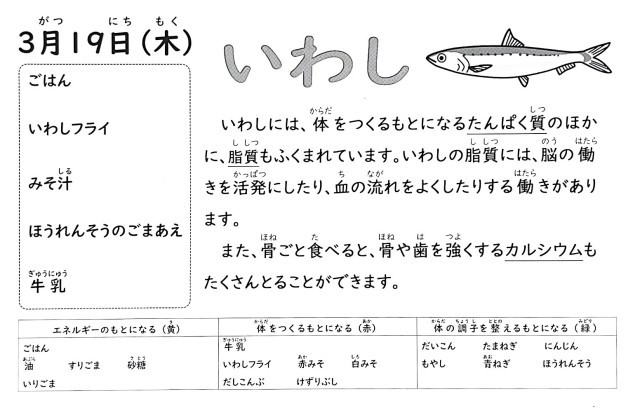 3月19日(木)
いわし
ごはん
いわしフライ
みそ汁
ほうれんそうのごまあえ
牛乳
いわしには、体をつくるもとになるたんぱく質のほか
に、脂質もふくまれています。いわしの脂質には、脳の働
きを活発にしたり、血の流れをよくしたりする働きがあり
ます。
また、骨ごと食べると、骨や歯を強くするカルシウムも
たくさんとることができます。
エネルギーのもとになる(黄)
ごはん
油 すりごま 砂糖
いりごま
体をつくるもとになる(赤)
牛乳
いわしフライ 赤みそ 白みそ
だしこんぶ けずりぶし
体の調子を整えるもとになる(緑)
だいこん たまねぎ にんじん
もやし 青ねぎ ほうれんそう